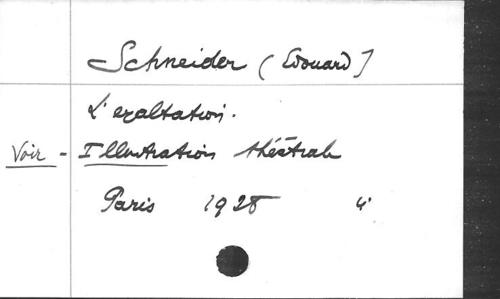 Schneider (Edouard)
L'exaltation.
Voir - Illustration théâtrale
Paris 1928 4°